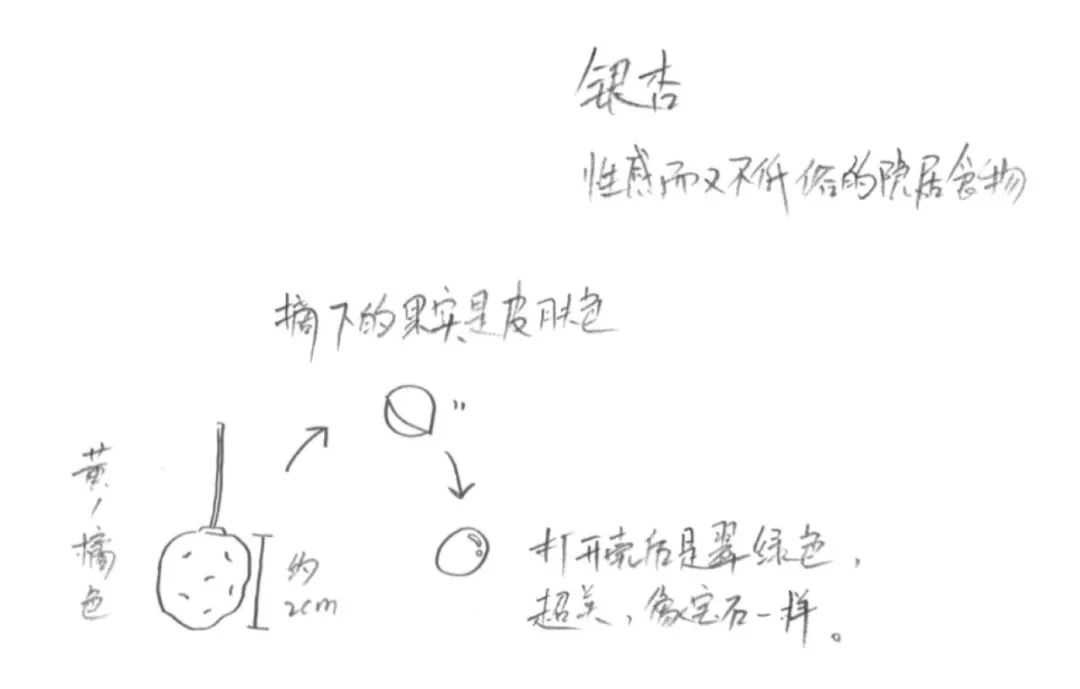 银杏
性感而又不低俗的隐居食物
摘下的果实是皮肤色
黄/橘色
约
2cm
打开壳后是翠绿色，
超美，像宝石一样。